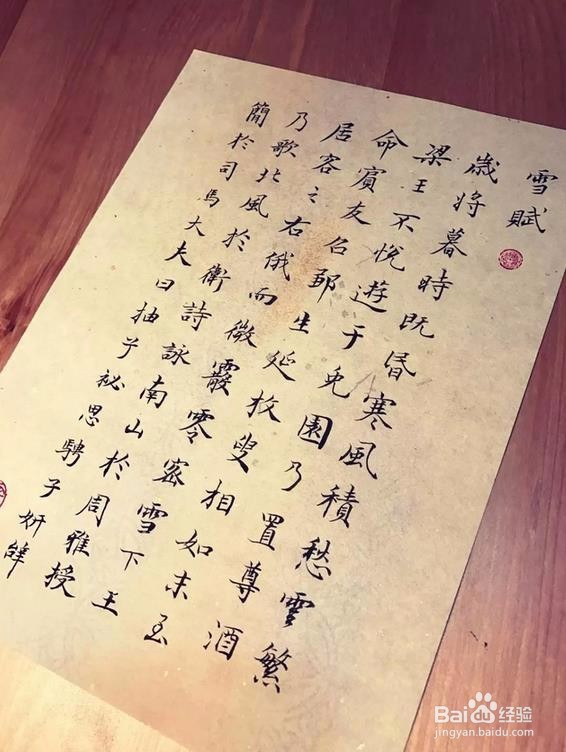 雪賦
歲将暮時既昏寒風積愁雲繁
梁王不悅遊于兔園乃置尊酒
命賓友召鄒生延枚叟相如末至
居客之右俄而微霰零密雪下王
乃歌北風於衛詩詠南山於周雅授
簡於司馬大夫曰抽子祕思騁子妍辭
Baidu经验
jingyan.baidu.com